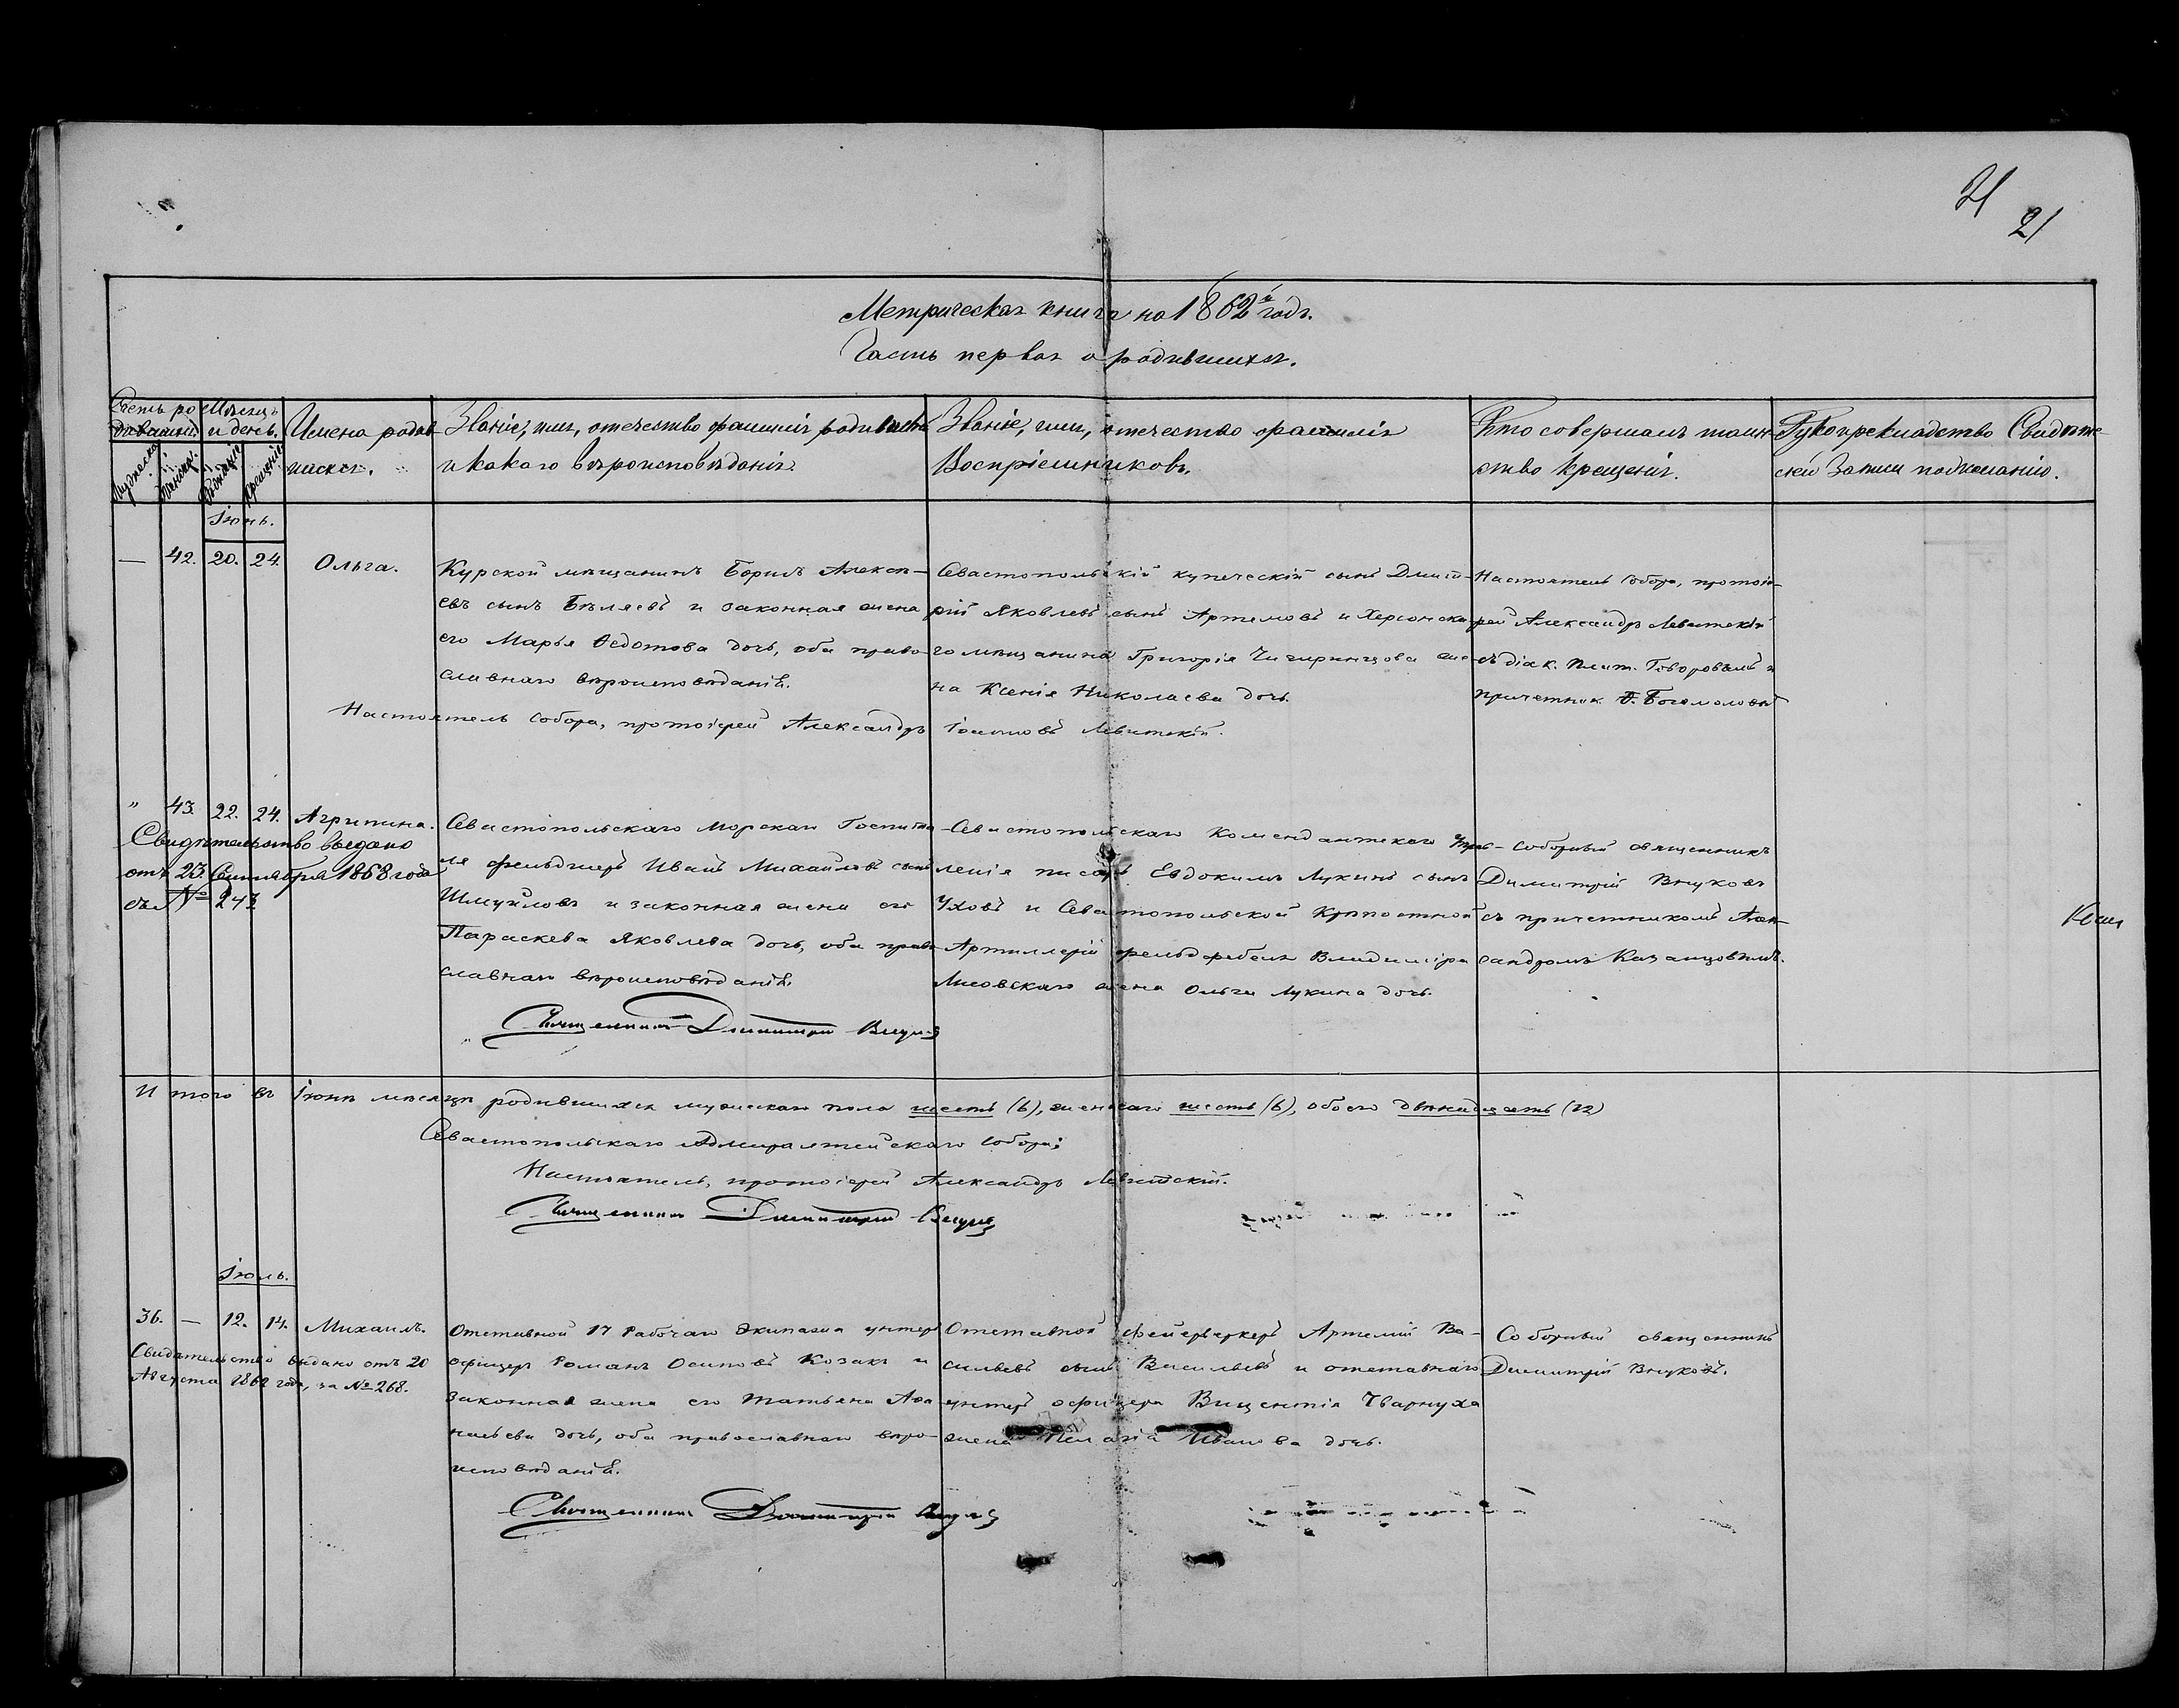 21
21
Метрическая книга на 1862й годъ.
Часть первая о родившихся.
Счетъ ро
дившихся.
Мужеска
Женска
Мѣсяцъ
и день.
Рожденія
Крещенія
Имена родив
шихся.
Званіе, имя, отечество фамилія родителей
и какого вѣроисповѣданія.
Званіе, имя, отечество фамилія
Воспріемниковъ.
Кто совершалъ таин
ство крещенія.
Рукоприкладство Свидѣте-
лей записи по желанію.
Іюнь.
— 42. 20. 24. Ольга.
Курской мѣщанинъ Борисъ Алексѣ-
евъ сынъ Бѣляевъ и законная жена
его Марья Ѳедотова дочь, оба право-
славнаго вѣроисповѣданія.
Севастопольскій купеческій сынъ Дмит-
рій Яковлевъ сынъ Артемовъ и Херсонска
го мѣщанина Григорія Чигиринцова же-
на Ксенія Николаева дочь.
Настоятель собора, протоіе-
рей Александръ Левитскій
съ діак. Плат. Говоровымъ и
причетник. Ѳ. Богомоловымъ
Настоятель собора, протоіерей Александръ Іосифовъ Левитскій.
" 43. 22. 24. Агрипина.
Свидѣтельство выдано
отъ 23. Сентября 1868 года
съ № 243
Севастопольскаго Морскаго Госпита-
ля фельдшеръ Иванъ Михайловъ сынъ
Шмуйловъ и законная жена его
Параскева Яковлева дочь, оба право-
славнаго вѣроисповѣданія.
Севастопольскаго Комендантскаго Управ-
ленія писарь Евдокимъ Лукинъ сынъ
Уховъ и Севастопольской Крѣпостной
Артиллеріи фельдфебеля Владиміра
Лисовскаго жена Ольга Лукина дочь.
Соборный священникъ
Димитрій Внуковъ
съ причетникомъ Алек-
сандромъ Казанцовымъ.
Священникъ Димитрій Внуковъ
Итого въ Іюнѣ мѣсяцѣ родившихся мужескаго пола шесть (6), женскаго шесть (6), обоего двѣнадцать (12)
Севастопольскаго Адмиралтейскаго собора:
Настоятель, протоіерей Александръ Левитскій.
Священникъ Димитрій Внуковъ
Іюль.
36. — 12. 14. Михаилъ.
Свидѣтельство выдано отъ 20
Августа 1862 года, за № 268.
Отставной 17 Рабочаго Экипажа унтеръ
офицеръ Романъ Осиповъ Козакъ и
законная жена его Татьяна Ава-
кьева дочь, оба православнаго вѣро-
исповѣданія.
Отставной фейерверкеръ Артемій Ва-
сильевъ сынъ Васильевъ и отставнаго
унтеръ офицера Вицентія Чварнуха
жена Пелагія Иванова дочь.
Соборный священникъ
Димитрій Внуковъ.
Священникъ Димитрій Внуковъ